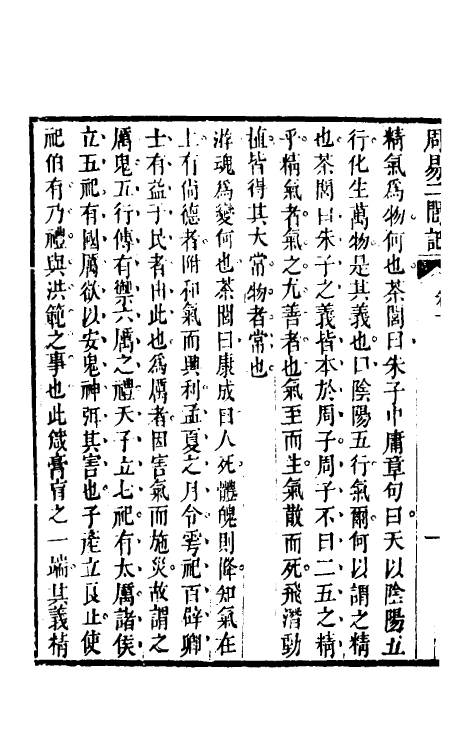 周易二閭記 卷 一
精氣為物何也茶閭曰朱子中庸章句曰天以陰陽五
行化生萬物是其義也曰陰陽五行氣爾何以謂之精
也茶閭曰朱子之義皆本於周子周子不曰二五之精
乎精氣者氣之尤善者也氣至而生氣散而死飛潛動
植皆得其大常物者常也
游魂為變何也茶閭曰康成曰人死體魄則降知氣在
上有尚德者附和氣而興利孟夏之月令雩祀百辟卿
士有益于民者由此也為厲者因害氣而施災故謂之
厲鬼五行傳有禦六厲之禮天子立七祀有太厲諸侯
立五祀有國厲欲以安鬼神弭其害也子產立良止使
祀伯有乃禮與洪範之事也此箴膏肓之一端其義精